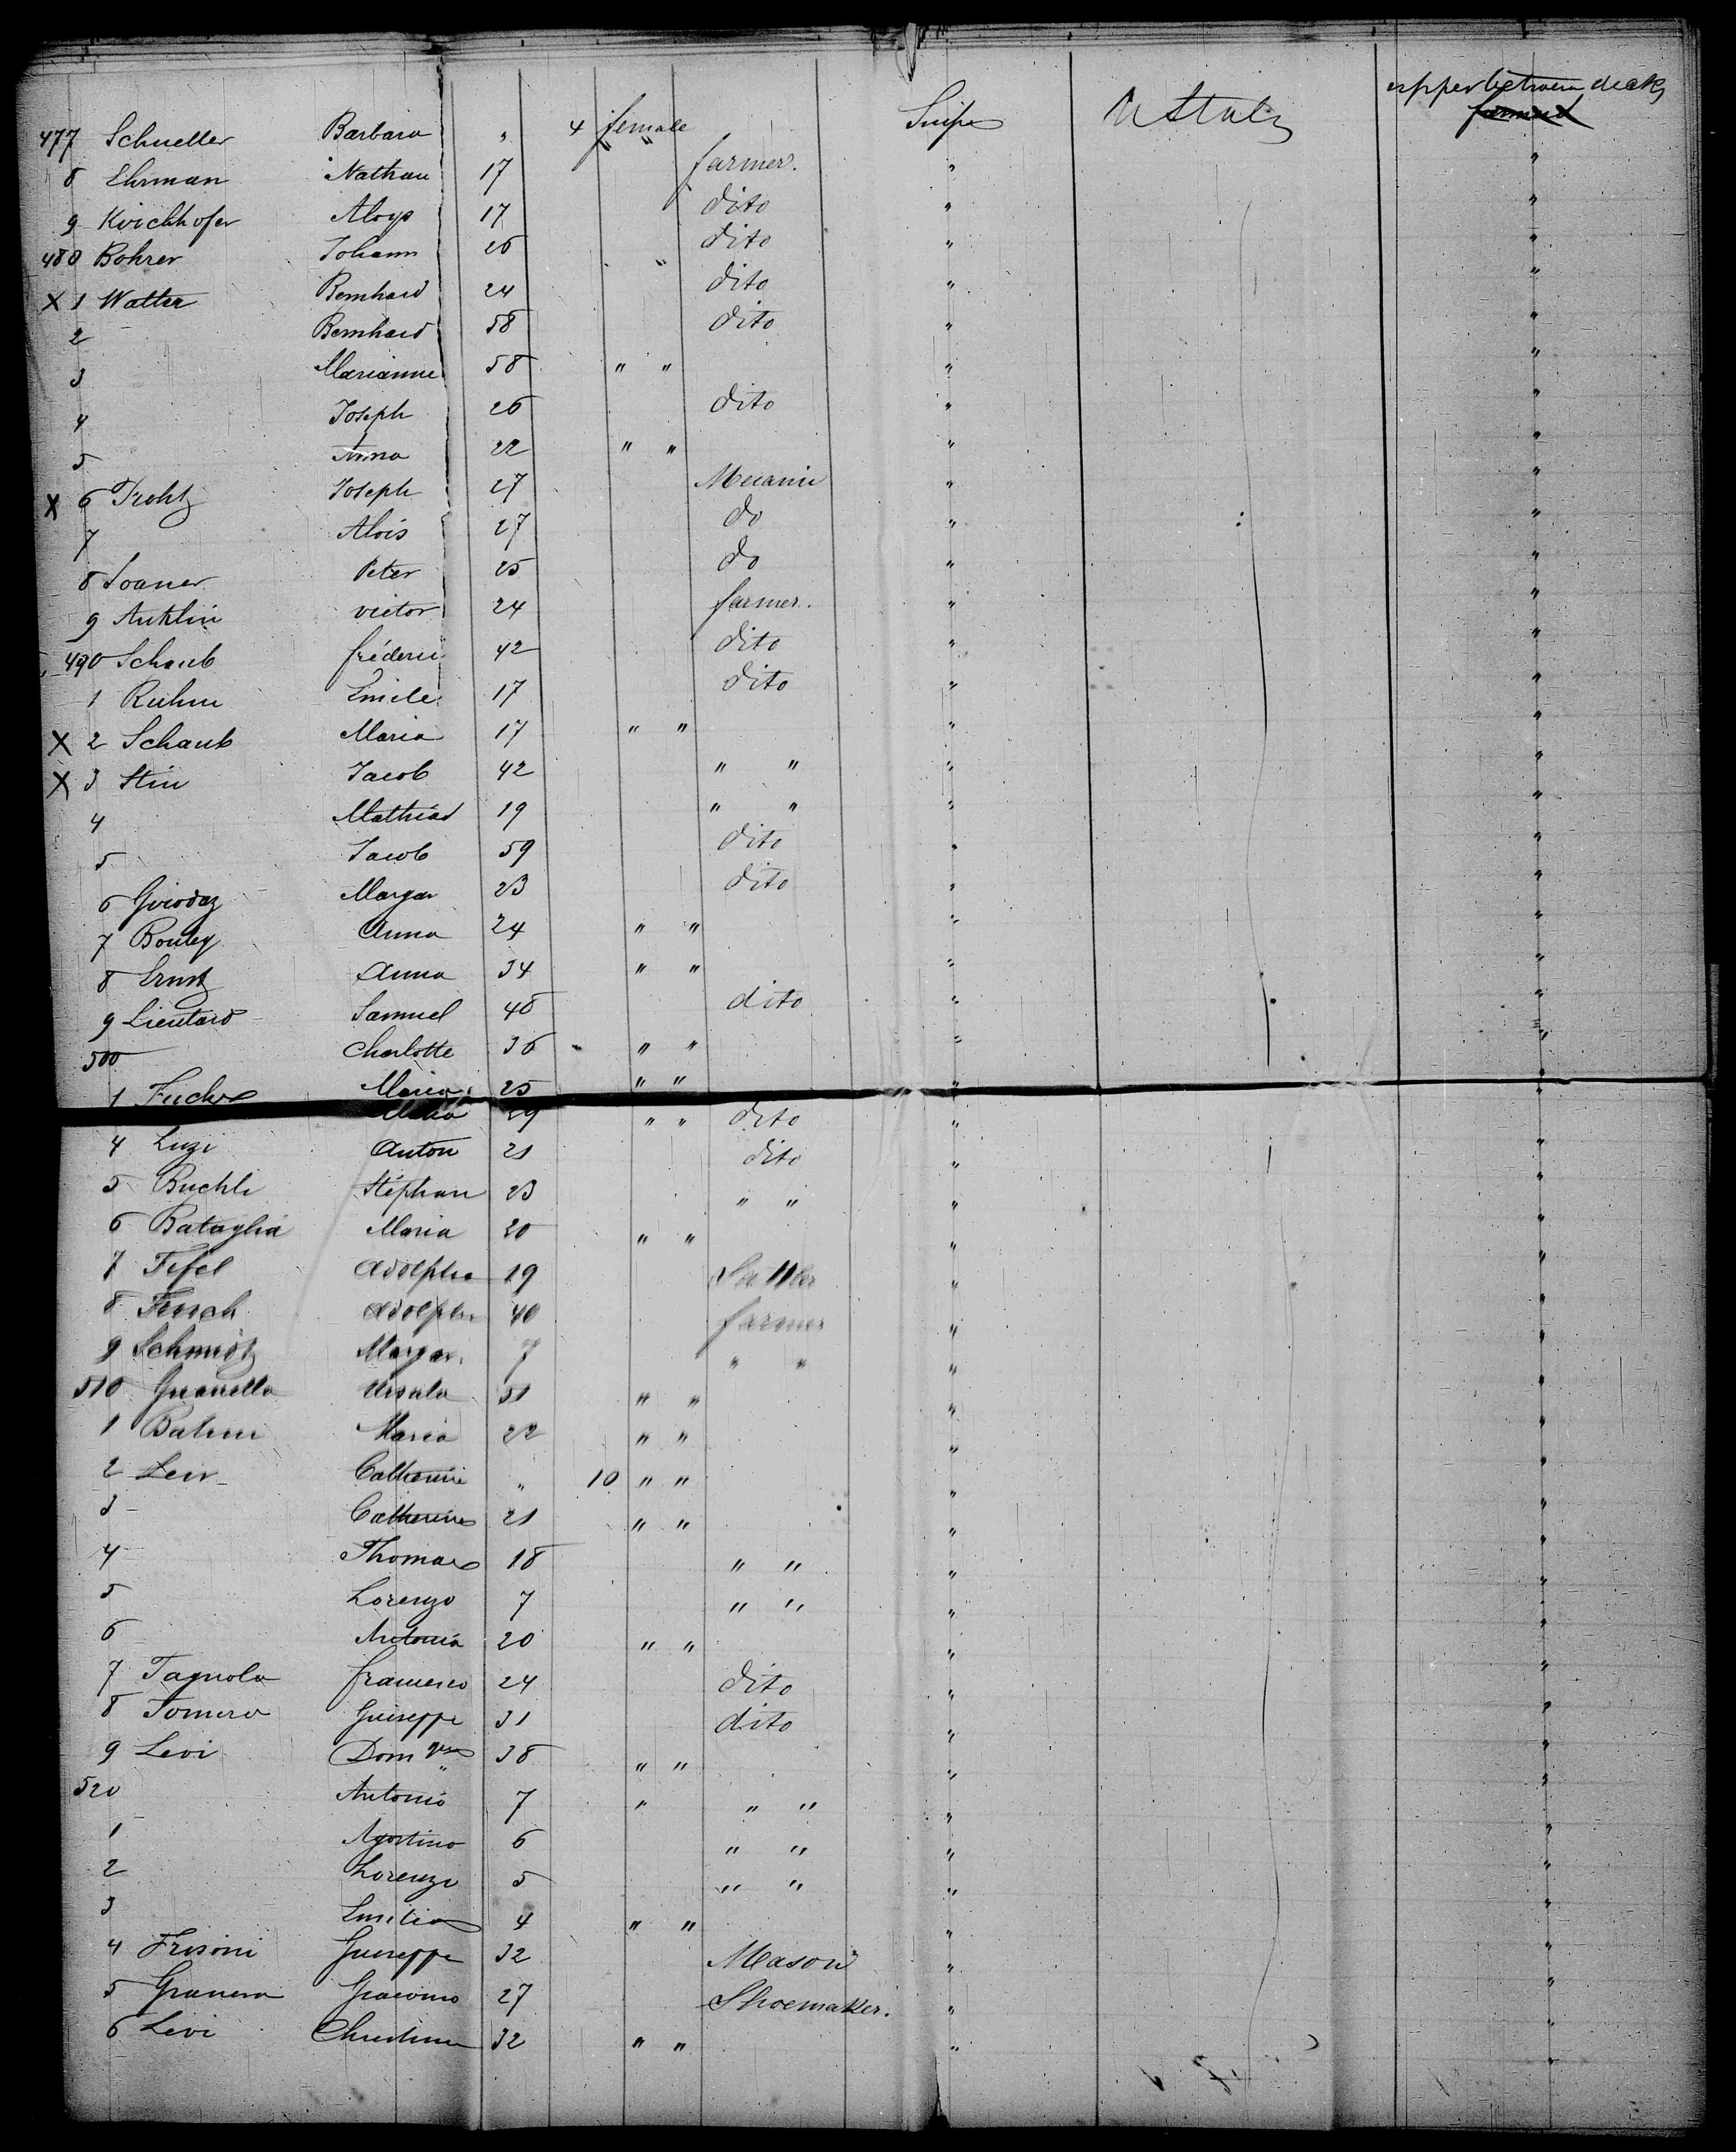 upper between decks
477 Schueller Barbara " 4 female Suisse U Stats
8 Ehrman Nathan 17 farmer. " "
9 Kirchhofer Aloys 17 dito " "
480 Bohrer Johann 26 dito " "
X 1 Walter Bernhard 24 dito " "
2 Bernhard 58 dito " "
3 Marianne 58 " " " "
4 Joseph 26 dito " "
5 Anna 22 " " " "
X 6 Joseph 27 Mecanic " "
7 Alois 27 do " "
8 Peter 25 do " "
9 Anklin victor 24 farmer. " "
490 Schaub fréderic 42 dito " "
1 Emile 17 dito " "
X 2 Schaub Maria 17 " " " "
X 3 Jacob 42 " " " "
4 Mathias 19 " " " "
5 Jacob 59 dito " "
6 Margar 23 dito " "
7 Anna 24 " " " "
8 Ernst Anna 34 " " " "
9 Samuel 48 dito " "
500 Charlotte 36 " " " "
1 Fuchs Maria 25 " " " "
29 " " dito " "
4 Luzi Anton 21 dito " "
5 Buchli Stéphan 23 " " " "
6 Bataglia Maria 20 " " " "
7 Adolphe 19 Sattler " "
8 Adolphe 40 farmer " "
9 Schmidt Margar. 7 " " " "
510 Ursula 51 " " " "
1 Maria 22 " " " "
2 Catherine " 10 " " " "
3 Catherine 21 " " " "
4 Thomas 18 " " " "
5 Lorenzo 7 " " " "
6 Antonia 20 " " " "
7 Tagnola francesco 24 dito " "
8 Guiseppe 31 dito " "
9 Levi 38 " " " "
520 Antonio 7 " " " " "
1 Agostino 6 " " " "
2 Lorenzo 5 " " " "
3 Emilia 4 " " " "
4 Frisoni Guiseppe 32 Mason " "
5 Giacomo 27 Shoemaker. " "
6 Levi Christina 32 " " " "